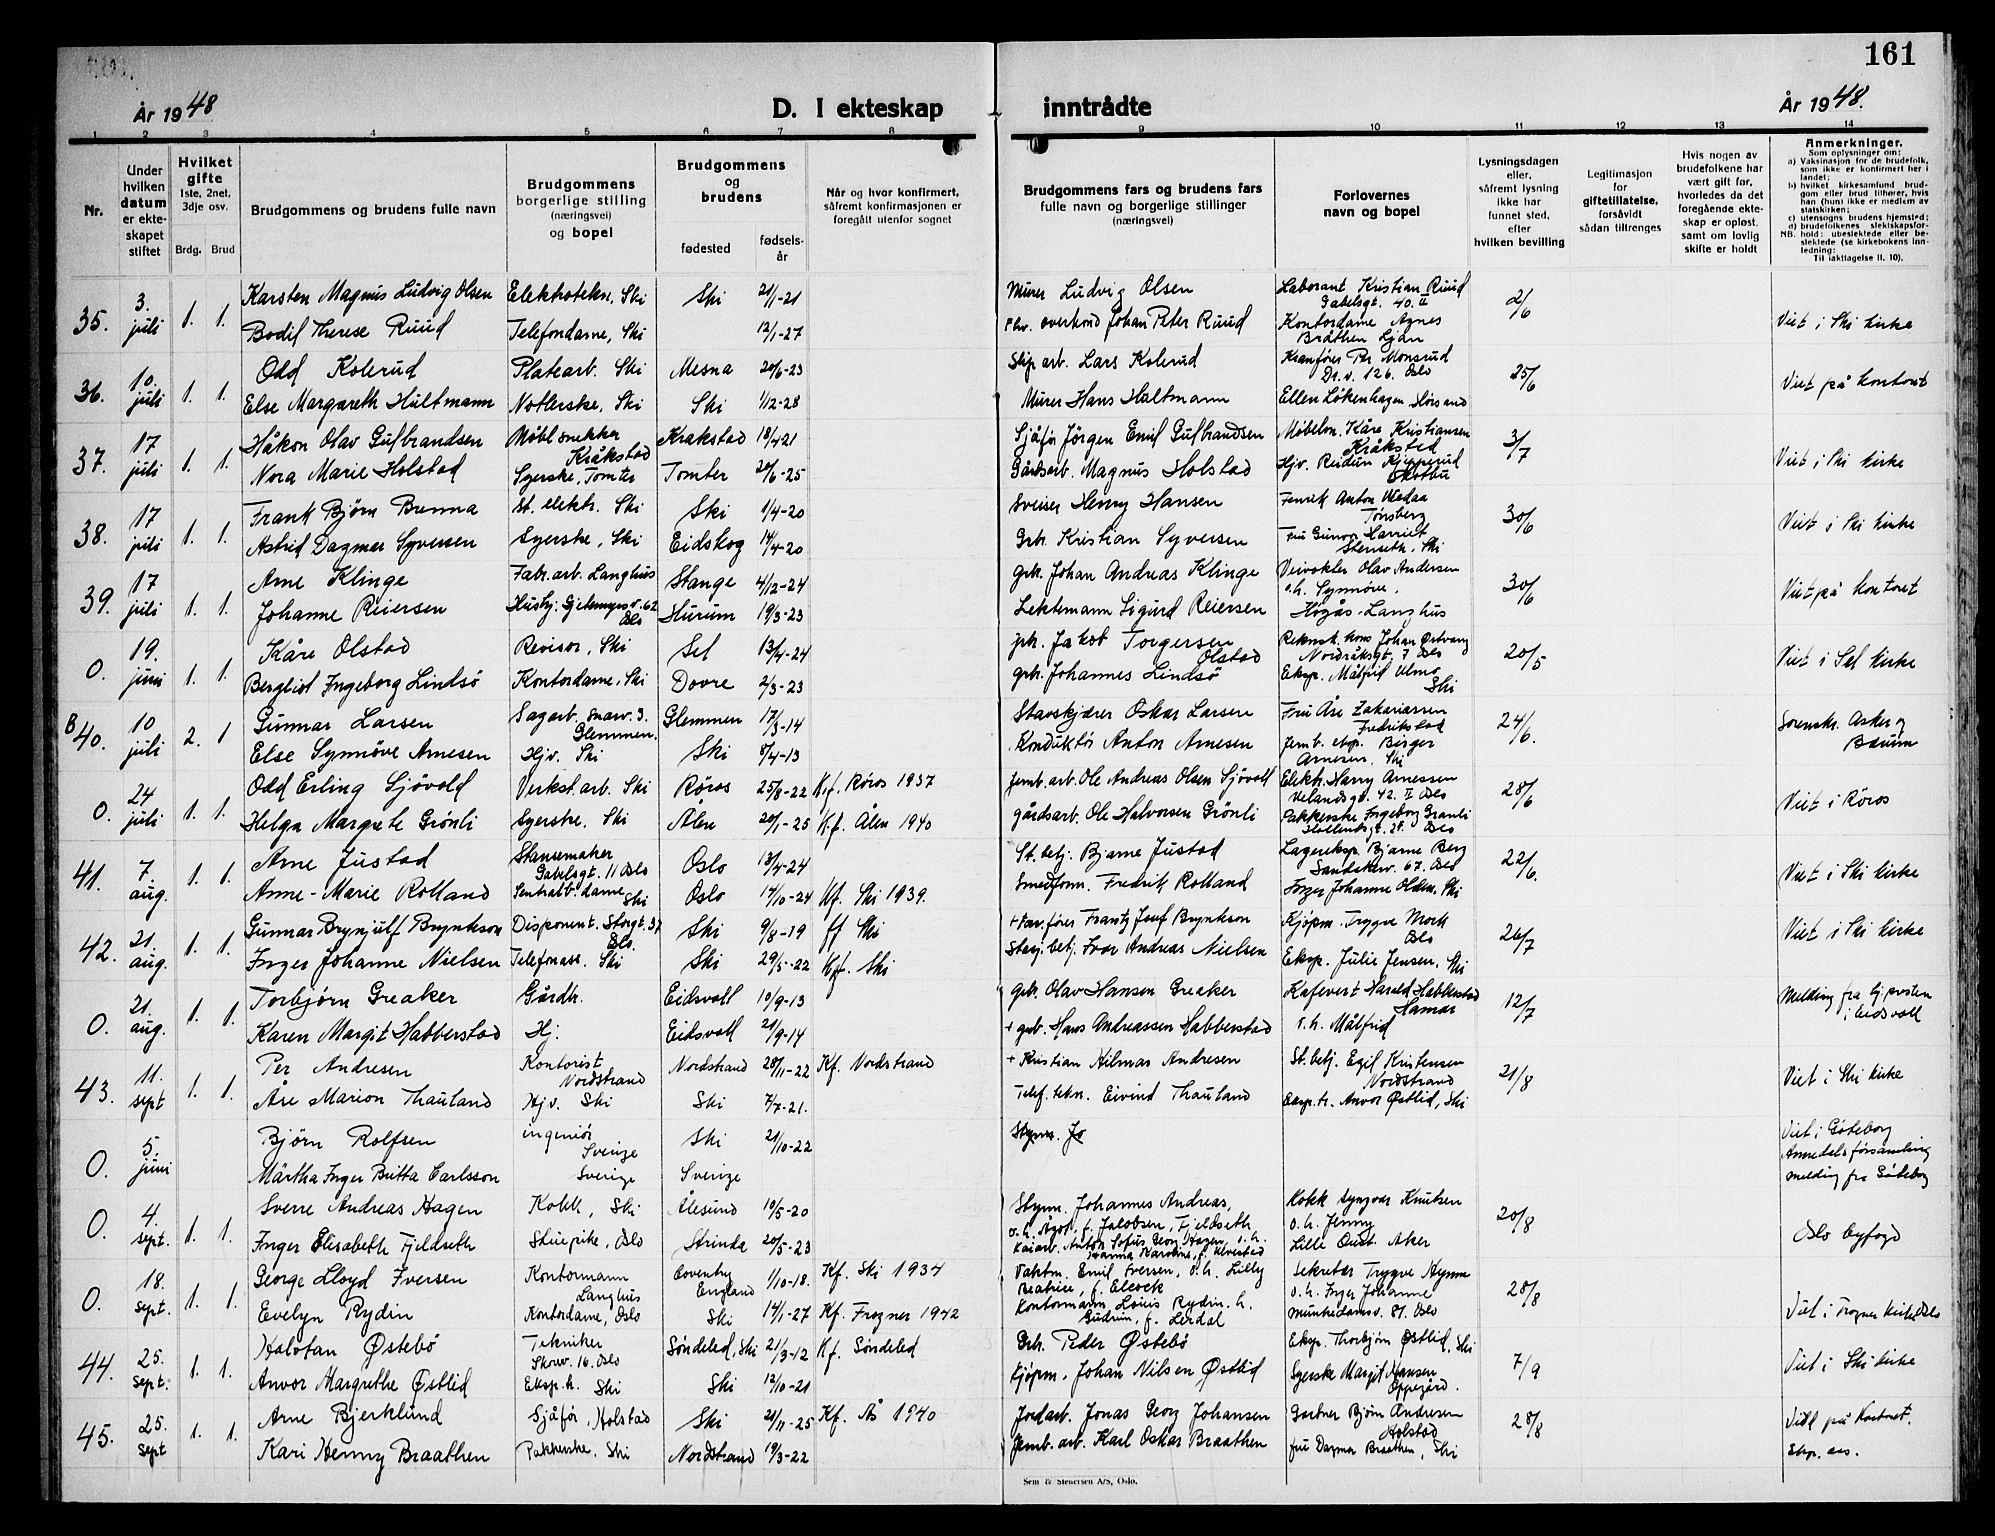 161
År 1948
D. I ekteskap inntrådte
År 1948.
1 2 3 4 5 6 7 8 9 10 11 12 13 14
Nr.
Under hvilken datum er ekteskapet stiftet
Hvilket gifte
1ste, 2net, 3dje osv.
Brdg. Brud
Brudgommens og brudens fulle navn
Brudgommens borgerlige stilling (næringsvei) og bopel
Brudgommens og brudens
fødested
fødselsår
Når og hvor konfirmert, såfremt konfirmasjonen er foregått utenfor sognet
Brudgommens fars og brudens fars fulle navn og borgerlige stillinger (næringsvei)
Forlovernes navn og bopel
Lysningsdagen eller, såfremt lysning ikke har funnet sted, efter hvilken bevilling
Legitimasjon for giftetillatelse, forsåvidt sådan tiltrenges
Hvis nogen av brudefolkene har vært gift før, hvorledes da det foregående ekteskap er opløst, samt om lovlig skifte er holdt
Anmerkninger.
Som oplysninger om:
a) Vaksinasjon for de brudefolk, som ikke er konfirmert her i landet;
b) hvilket kirkesamfund brudgom eller brud tilhører, hvis han (hun) ikke er medlem av statskirken;
c) utensogns brudens hjemsted;
d) brudefolkenes slektskapsforhold: ubeslektede eller beslektede (se kirkebokens Innledning:
NB. Til iakttagelse II. 10).
35. 3. juli 1. 1. Karsten Magnus Ludvig Olsen Elektrotekn, Ski Ski 21/1-21 Murer Ludvig Olsen Laborant Kristian Ruud Gabelsgt. 40. II 2/6
Bodil Therese Ruud Telefondame, Ski 12/1-27 overkond Johan Peter Ruud Kontordame Agnes Bråthen Ljan Viet i Ski kirke
36. 10. juli 1. 1. Odd Kolerud Platearb. Ski Mesna 20/6-23 Skip arb. Lars Kolerud Kranfører Per Monsrud Dr. v. 126. Oslo 25/6
Else Margareth Hultmann Ski Ski 1/12-28 Murer Hans Hultmann Ellen Løkenhagen Viet på kontoret
37. 17 juli 1. 1. Håkon Olav Gulbrandsen Møbl snekker Kråkstad Krakstad 18/4-21 Sjåfør Jørgen Emil Gulbrandsen Møbelsn. Kåre Kristiansen Kråkstad 3/7
Nora Marie Holstad Syerske, Tomter Tomter 20/6-25 Gårdsarb. Magnus Holstad Hjv. Reidun Skotbu Viet i Ski kirke
38. 17 juli 1. 1. Frank Bjørn Bunna St. elektr. Ski Ski 1/4-20 Sveiser Henry Hansen Fenrik Anton Tønsberg 30/6
Astrid Dagmar Syversen Syerske, Ski Eidskog 14/4-20 Grb. Kristian Syversen Fru Gunvor Harriet Stenseth, Ski Viet i Ski kirke
39. 17 juli 1. 1. Arne Klinge Fabr. arb. Langhus Stange 4/12-24 grb. Johan Andreas Klinge Veivokter Olav Andersen o.h. Synnøve, 30/6
Johanne Reiersen Husby. Gjetemyrsv. 62 Oslo Hurum 19/3-23 Lektemann Sigurd Reiersen Høgås-Langhus Viet på kontoret
0. 19. juni 1. 1. Kåre Olstad Revisor, Ski Sel 13/4-24 grb. Jakob Torgersen Olstad Johan Nordråksgt. 7 Oslo 20/5
Bergliot Ingeborg Lindsø Kontordame, Ski Dovre 2/3-23 grb. Johannes Lindsø Eksp. Målfrid Ulmo Ski Viet i Sel kirke
B 40. 10 juli 2. 1 Gunnar Larsen Sagarb. Snarv. 3. Glemmen. Glemmen 17/3-14 Stavskjærer Oskar Larsen Fru Åse Zakariassen Fredrikstad 24/6.
Else Synnöve Arnesen Hjv. Ski Ski 8/4-13 Konduktør Anton Arnesen Jernb. eksp. Birger Arnesen, Ski Sorenskr. Asker og Bærum
0. 24 juli 1. 1. Odd Erling Sjövold Verkst. arb. Ski Røros 25/8-22 K.f. Røros 1937 Jernb. arb. Ole Andreas Olsen Sjövoll Elektr. Harry Arnessen Uelandsgt. 42. II Oslo 28/6
Helga Margrete Grönli Syerske. Ski Ålen 20/1-25 K.f. Ålen 1940 gårdsarb. Ole Halvorsen Grönli Pakkerske Ingeborg Grønli Oslo Viet i Røros
41. 7. aug. 1. 1. Arne Justad Stansemaker Gabelsgt. 11 Oslo Oslo 13/4-24 St. betj. Bjarne Justad Lagereksp. Bjarne Berg Sandakerv. 67. Oslo 22/6.
Anne-Marie Rolland Sentralb. dame Ski Oslo 14/10-24 Kf. Ski 1939. Smedform. Fredrik Rolland Inger Johanne Olden, Ski Viet i Ski kirke
42. 21. aug. 1. 1. Gunnar Brynjulf Brynkson Disponent. Storgt. 37 Oslo. Ski 9/8-19 ff Ski + Frantz Josef Brynkson Kjøpm. Trygve Mork Oslo 26/7
Inger Johanne Nielsen Telefonass. Ski Ski 29/5-22 Kf. Ski Stasj. betj. Ivar Andreas Nielsen Eksp. Julie Jensen, Ski Viet i Ski kirke
0. 21. aug. 1. 1. Torbjørn Greaker Gårdbr. Eidsvoll 10/9-13 grb. Olav Hansen Greaker Kafevert Harald Habberstad Hamar 12/7
Karen Margit Habberstad Hj. Eidsvoll 21/9-14 + grb. Hans Andreassen Habberstad o.h. Målfrid Melding fra spr.presten i Eidsvoll
43. 11. sept 1. 1. Per Andresen Kontorist Nordstrand Nordstrand 28/11-22 Kf. Nordstrand + Kristian Hilmar Andresen St. betj. Egil Kristensen Nordstrand 21/8
Åse Marion Thauland Hjv. Ski Ski 7/7-21. Telef. tekn. Eivind Thauland Eksp. tr. Anvor Østlid, Ski Viet i Ski kirke
0. 5. juni Bjørn Rolfsen ingeniør Sverige Ski 21/10-22 Viet i Göteborg
Märtha Inger Britta Carlsson Sverige Sverige Annedals församling melding fra Göteborg
0. 4. sept. 1. 1. Sverre Andreas Hagen Kokk, Ski Ålesund 10/5-20 Styrm. Johannes Andreas, o.h. Jakobsen, Fjeldseth Kokk Syngvar Knutsen o.h. Jenny 20/8
Inger Elisabeth Fjeldseth Stuepike, Oslo Strinda 20/5-23 Kaiarb. Anton Sofus Georg Hagen, o.h. Hanna Karoline, f. Ulvestad Lille Aker Oslo byfogd
0. 18. sept. 1. 1. George Lloyd Iversen Kontormann Langhus Coventry England 1/10-18. Kf. Ski 1934 Vaktm. Emil Iversen, o.h. Lilly Beatrice, f. Elcock Sekretær Trygve Hynne o.h. Inger Johanne 28/8
Evelyn Rydin Kontordame, Oslo Ski 14/1-27 Kf. Frogner 1942 Kontormann Louis Rydin. h. Gudrun, f. Lerdal Munkedamsv. 81. Oslo Viet i Frogner kirke Oslo
44. 25. sept. 1. 1. Halvfan Østebö Tekniker Skovv. 16. Oslo Søndeled, Ski 21/3-12 Kf. Søndeled Grb. Peder Østebö Eksp. Thorbjørn Østlid, Ski 7/9
Anvor Margrethe Östlid Eksp. h. Ski Ski 12/10-21 kjøpm. Johan Nilsen Østlid Syerske Margit Hansen Oppegård. Viet i Ski kirke
45. 25. sept 1. 1. Arne Bjerklund Sjåfør, Holstad Ski 21/11-25 Kf. Ås 1940 Jordarb. Jonas Georg Johansen Gartner Bjørn Andresen Holstad 28/8
Kari Henny Braathen Pakkerske, Ski Nordstrand 19/3-22 Jernb. arb. Karl Oskar Braathen fru Dagmar Braathen, Ski Viet på kontoret.
Sem & Stenersen A/S, Oslo.